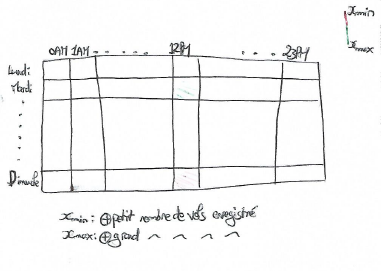 xmin
xmax
0AM 1AM . . . . . . 12PM . . . . 23PM
Lundi
Mardi
Dimanche
xmin : ⊕ petit nombre de vols enregistré
xmax : ⊕ grand ~ ~ ~ ~